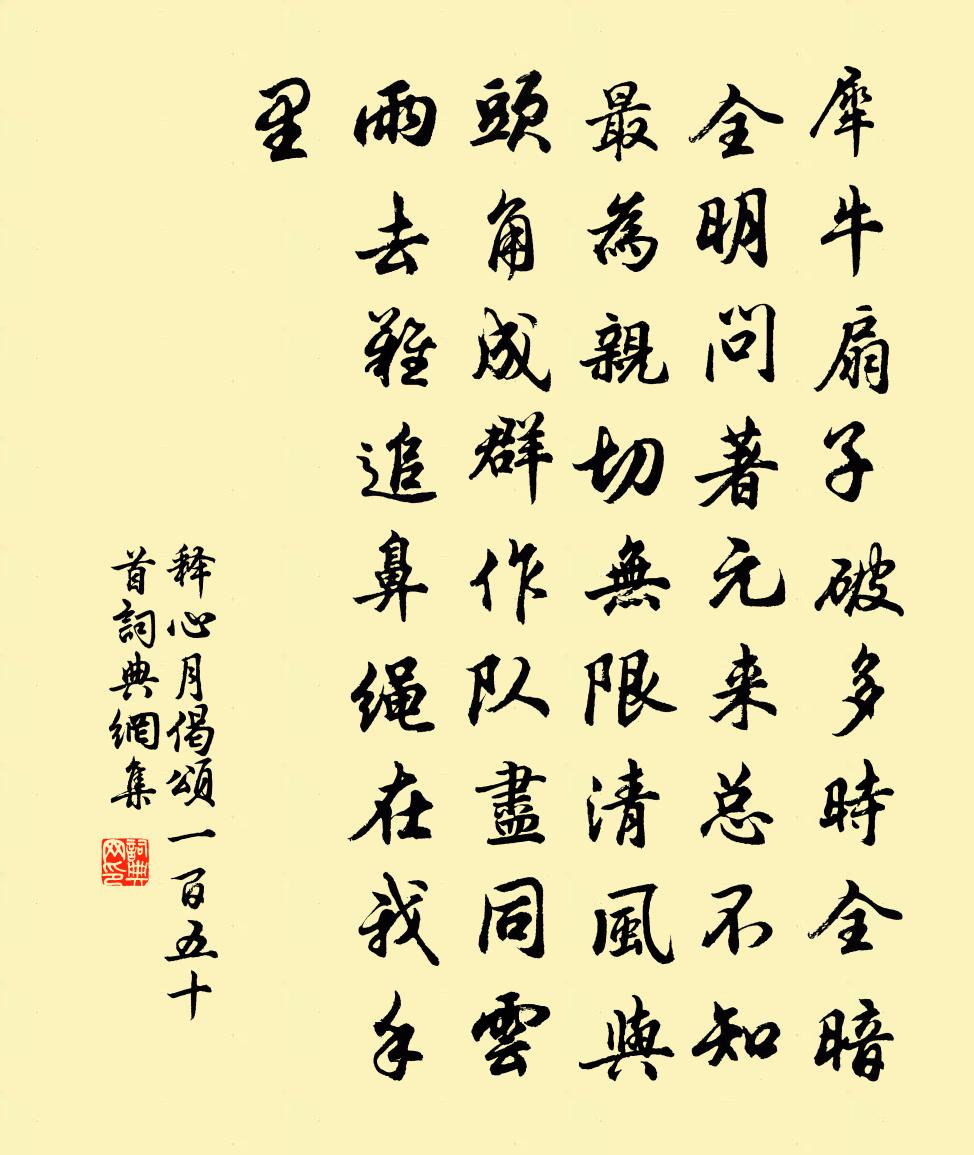 犀牛扇子破多時全暗
全明問著元来总不知
最為親切無限清風與
頭角成群作队盡同雲
雨去難追鼻绳在我手
里
释心月偈頌一百五十
首詞典網集
詞典
网印